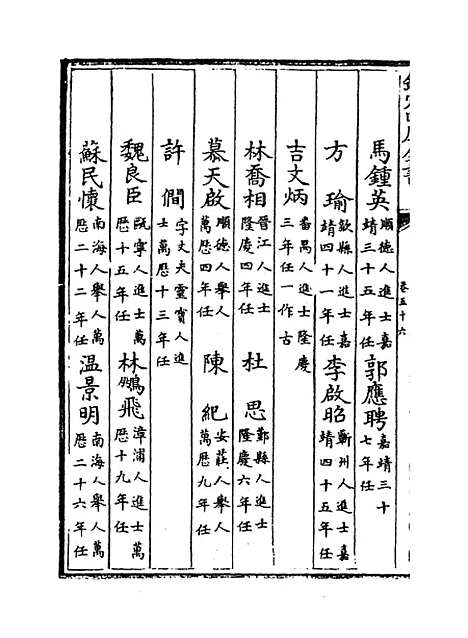 卷五十六
馬鍾英 順德人進士嘉靖三十五年任 郭應聘 嘉靖三十七年任
方瑜 歙縣人進士嘉靖四十一年任 李啟昭 蘄州人進士嘉靖四十五年任
吉文炳 番禺人進士隆慶三年任一作古
林喬相 晉江人進士隆慶四年任 杜思 鄞縣人進士隆慶六年任
慕天啟 順德人舉人萬厯四年任 陳紀 安莊人舉人萬厯九年任
許僩 字文夫靈寳人進士萬厯十三年任
魏良臣 甌寧人進士萬厯十五年任 林飛 漳浦人進士萬厯十九年任
蘇民懷 南海人舉人萬厯二十二年任 温景明 南海人舉人萬厯二十六年任